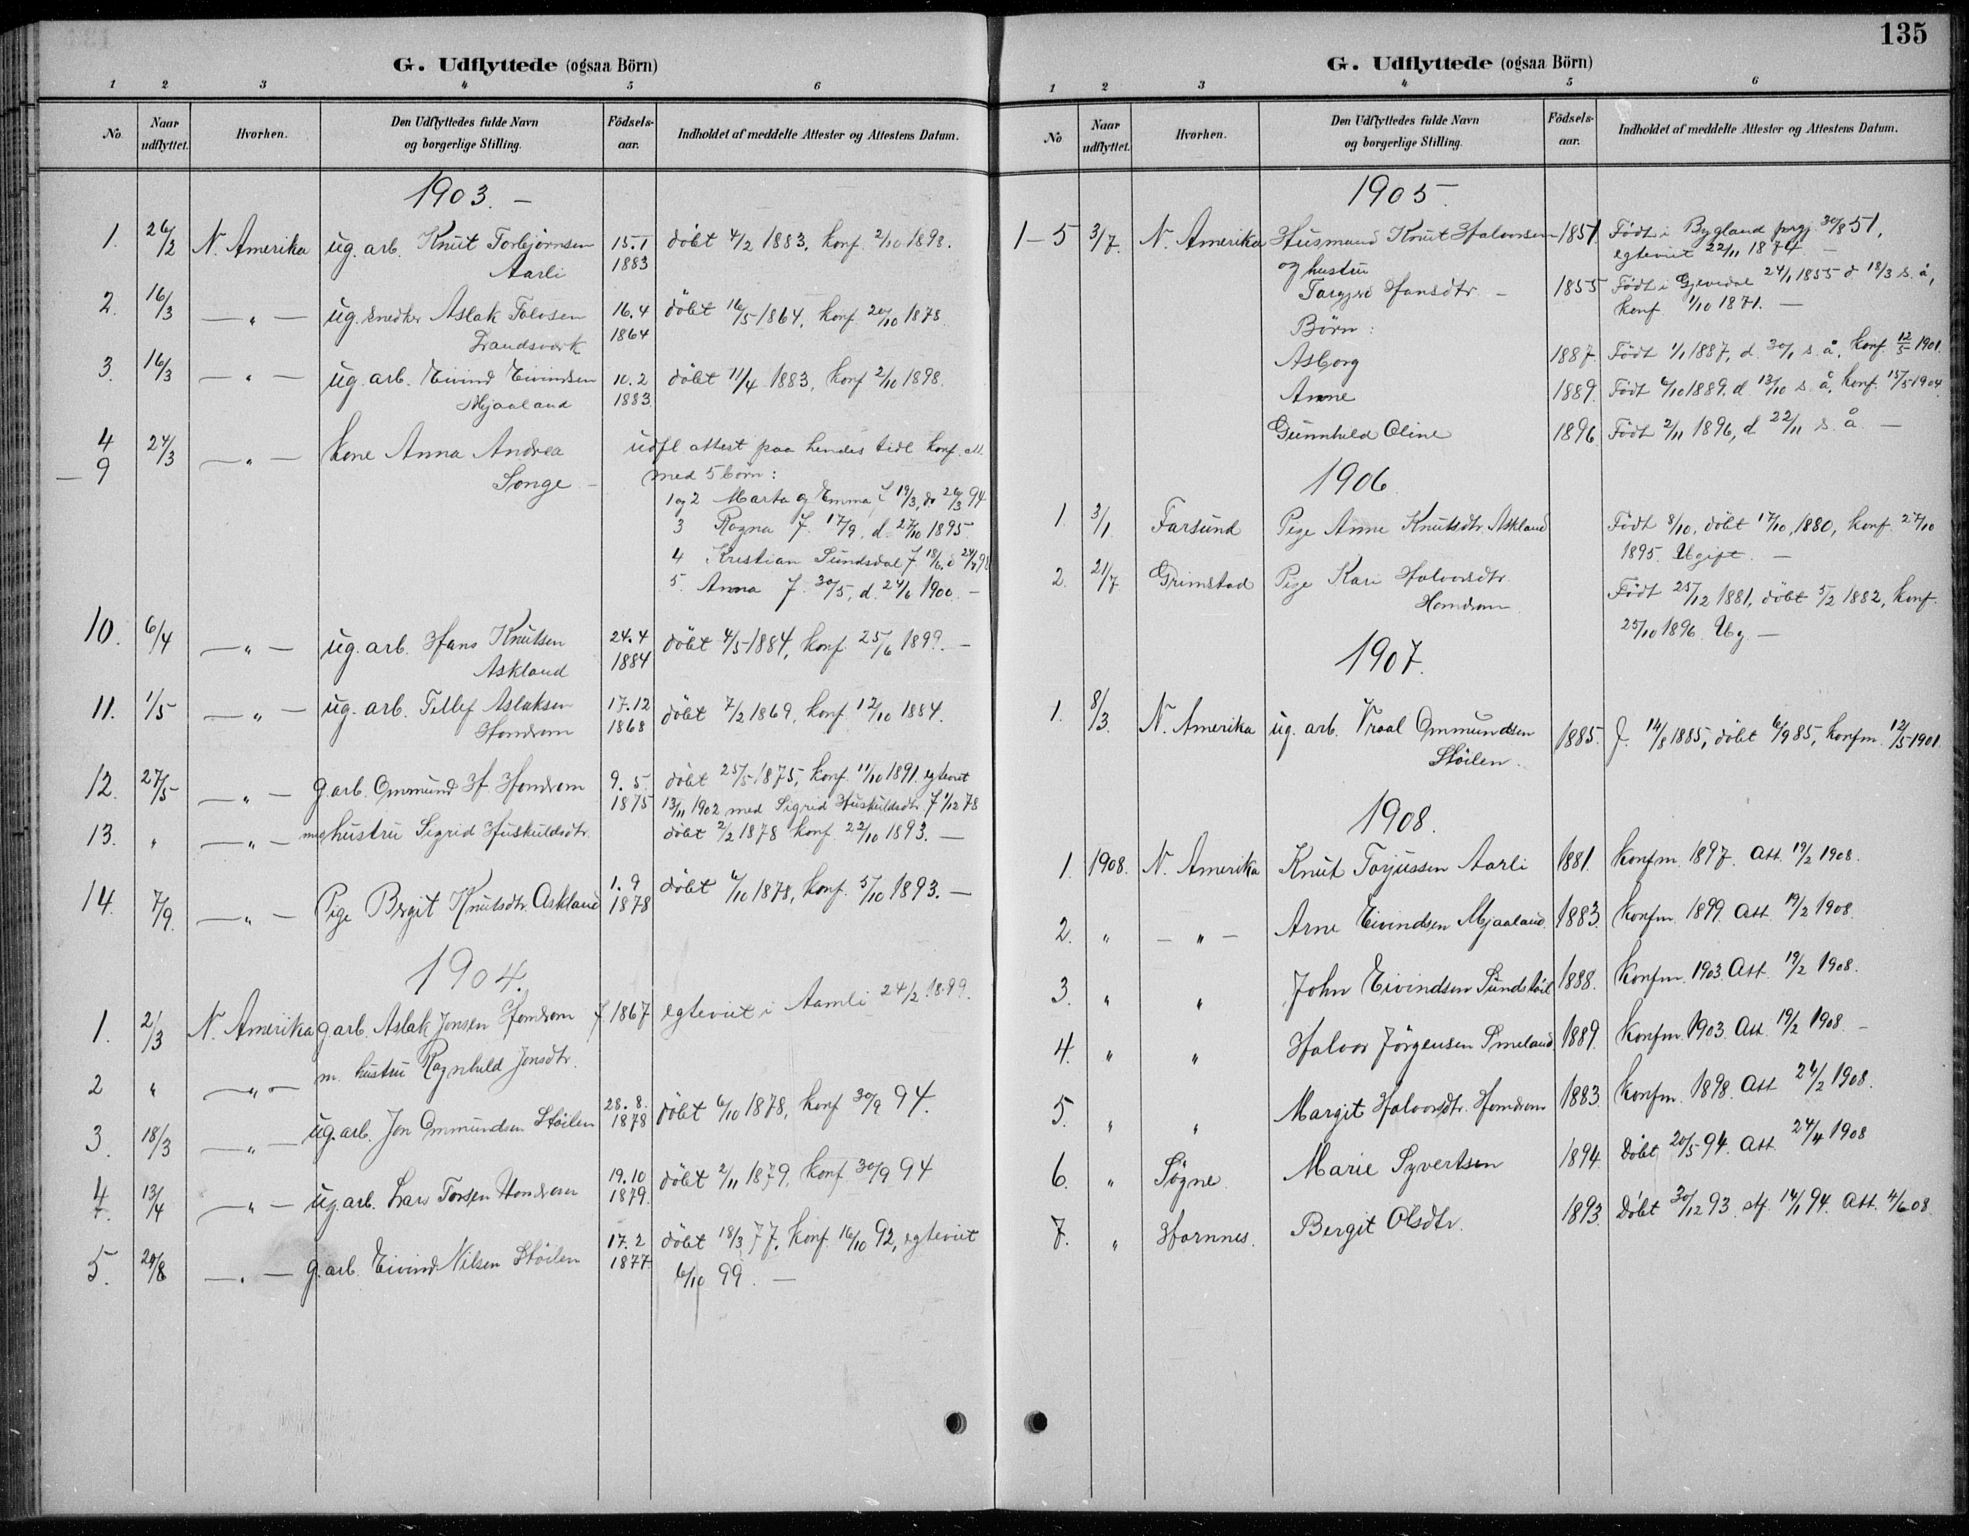 G. Udflyttede (ogsaa Börn)
1 2 3 4 5 6
No. Naar udflyttet. Hvorhen. Den Udflyttedes fulde Navn og borgerlige Stilling. Födselsaar. Indholdet af meddelte Attester og Attestens Datum.
1903. —
1. 26/2 N. Amerika ug. arb. Knut Torbjørnsen 15.1 døbt 4/2 1883, konf. 2/10 1898.
Aarli 1883
2. 16/3 — " — ug. snedker Aslak Tolvsen 16.4 døbt 16/5 1864, konf. 20/10 1878.
1864
3. 16/3 — " — ug. arb. Eivind Eivindsen 10.2 døbt 11/4 1883, konf 2/10 1898.
Mjaaland 1883
4 24/3 — " — Kone Anna Andrea udfl attest paa hendes tidl konf. att.
— 9 Songe — med 5 børn:
1 og 2 Marta og Emma f. 19/3, dø 26/3 94
3 Ragna f. 17/9, d. 27/10 1895.
4 Kristian Sundsdal f. 18/6, d 24/7 98
5. Anna f. 30/5, d. 24/6 1900. —
10. 6/4 — " — ug. arb. Hans Knutsen 24.4 døbt 4/5 1884, konf. 25/6 1899. —
Askland 1884
11. 1/5 — " — ug. arb. Tellef Aslaksen 17.12 døbt 7/2 1869, konf. 12/10 1884.
Homdrom 1868
12. 27/5 — " — g. arb. Ommund H. Homdrom 9.5. døbt 25/5 1875, konf. 11/10 1891. egteviet
1875 13/11 1902 med Sigrid Huskuldsdtr f 1/12 78
13. " — " — m. hustru Sigrid Huskuldsdtr. døbt 2/2 1878 konf. 22/10 1893. —
14. 7/9. — " — Pige Bergit Knutsdtr. Askland 1.9 1878 døbt 6/10 1878, konf. 5/10 1893. —
1904.
1. 2/3 N. Amerika g arb. Aslak Jonsen Homdrom f. 1867 egteviet i Aamli 24/2 1899.
2 " — " — m. hustru Ragnhild Jonsdtr.
3. 18/3 — " — ug. arb. Jon Ommundsen Støilen 28.8. 1878 døbt 6/10 1878, konf 30/9 94.
4. 13/4 — " — ug. arb. Lars Torsen Homdrom 19.10 1879. døbt 2/11 1879, konf 30/9 94
5. 20/8 — " — g. arb. Eivind Nilsen Støilen 17.2 1877 døbt 18/3 77, konf. 16/10 92, egteviet
6/10 99. —
135
G. Udflyttede (ogsaa Börn)
1 2 3 4 5 6
No Naar udflyttet. Hvorhen. Den Udflyttedes fulde Navn og borgerlige Stilling. Födselsaar. Indholdet af meddelte Attester og Attestens Datum.
1905.
1–5 3/7. N. Amerika Husmand Knut Halvorsen 1851. Født i Bygland prgj. 30/8 51,
og hustru egteviet 22/11 1874 —
Torgjer Hansdtr. — 1855 Født i Gjevedal 24/1 1855 d 18/3 s. å,
konf 1/10 1871. —
Børn:
Asborg 1887. Født 1/1 1887, d. 30/1 s. å, konf. 12/5 1901.
Anne 1889. Født 6/10 1889, d 13/10 s. å, konf. 15/5 1904
Gunnhild Oline 1896. Født 2/11 1896, d 22/11 s. å —
1906.
1. 3/1 Farsund Pige Anne Knutsdtr. Askland Født 8/10, døbt 17/10 1880, konf. 27/10
1895. Ugift. —
2. 21/7 Grimstad Pige Kari Halvorsdtr. Født 25/12 1881, døbt 5/2 1882, konf.
Homdrom 25/10 1896. Ug. —
1907.
1. 8/3. N. Amerika ug. arb. Vraal Ommundsen 1885. f. 14/8 1885, døbt 6/9 85, konfm. 12/5 1901.
Støilen.
1908.
1. 1908. N. Amerika Knut Torjussen Aarli 1881. Konfm. 1897. Att. 19/2 1908.
2. " — " — Arne Eivindsen Mjaaland. 1883. Konfm. 1899. Att. 19/2 1908.
3. " " John Eivindsen Sundstøil 1888. Konfm. 1903 Att. 19/2 1908.
4. " " Halvor Jørgensen Smeland 1889. Konfm. 1903. Att. 19/2 1908. —
5. " " Margit Halvorsdtr. Homdrom 1883. Konfm. 1898. Att. 26/2 1908.
6. " Søgne Marie Syvertsen 1894 Døbt 20/5 94. Att. 24/4 1908
7. " Hornnes. Bergit Olsdtr. 1893. Døbt 30/12 93. stf. 14/1 94. Att. 4/6 08.